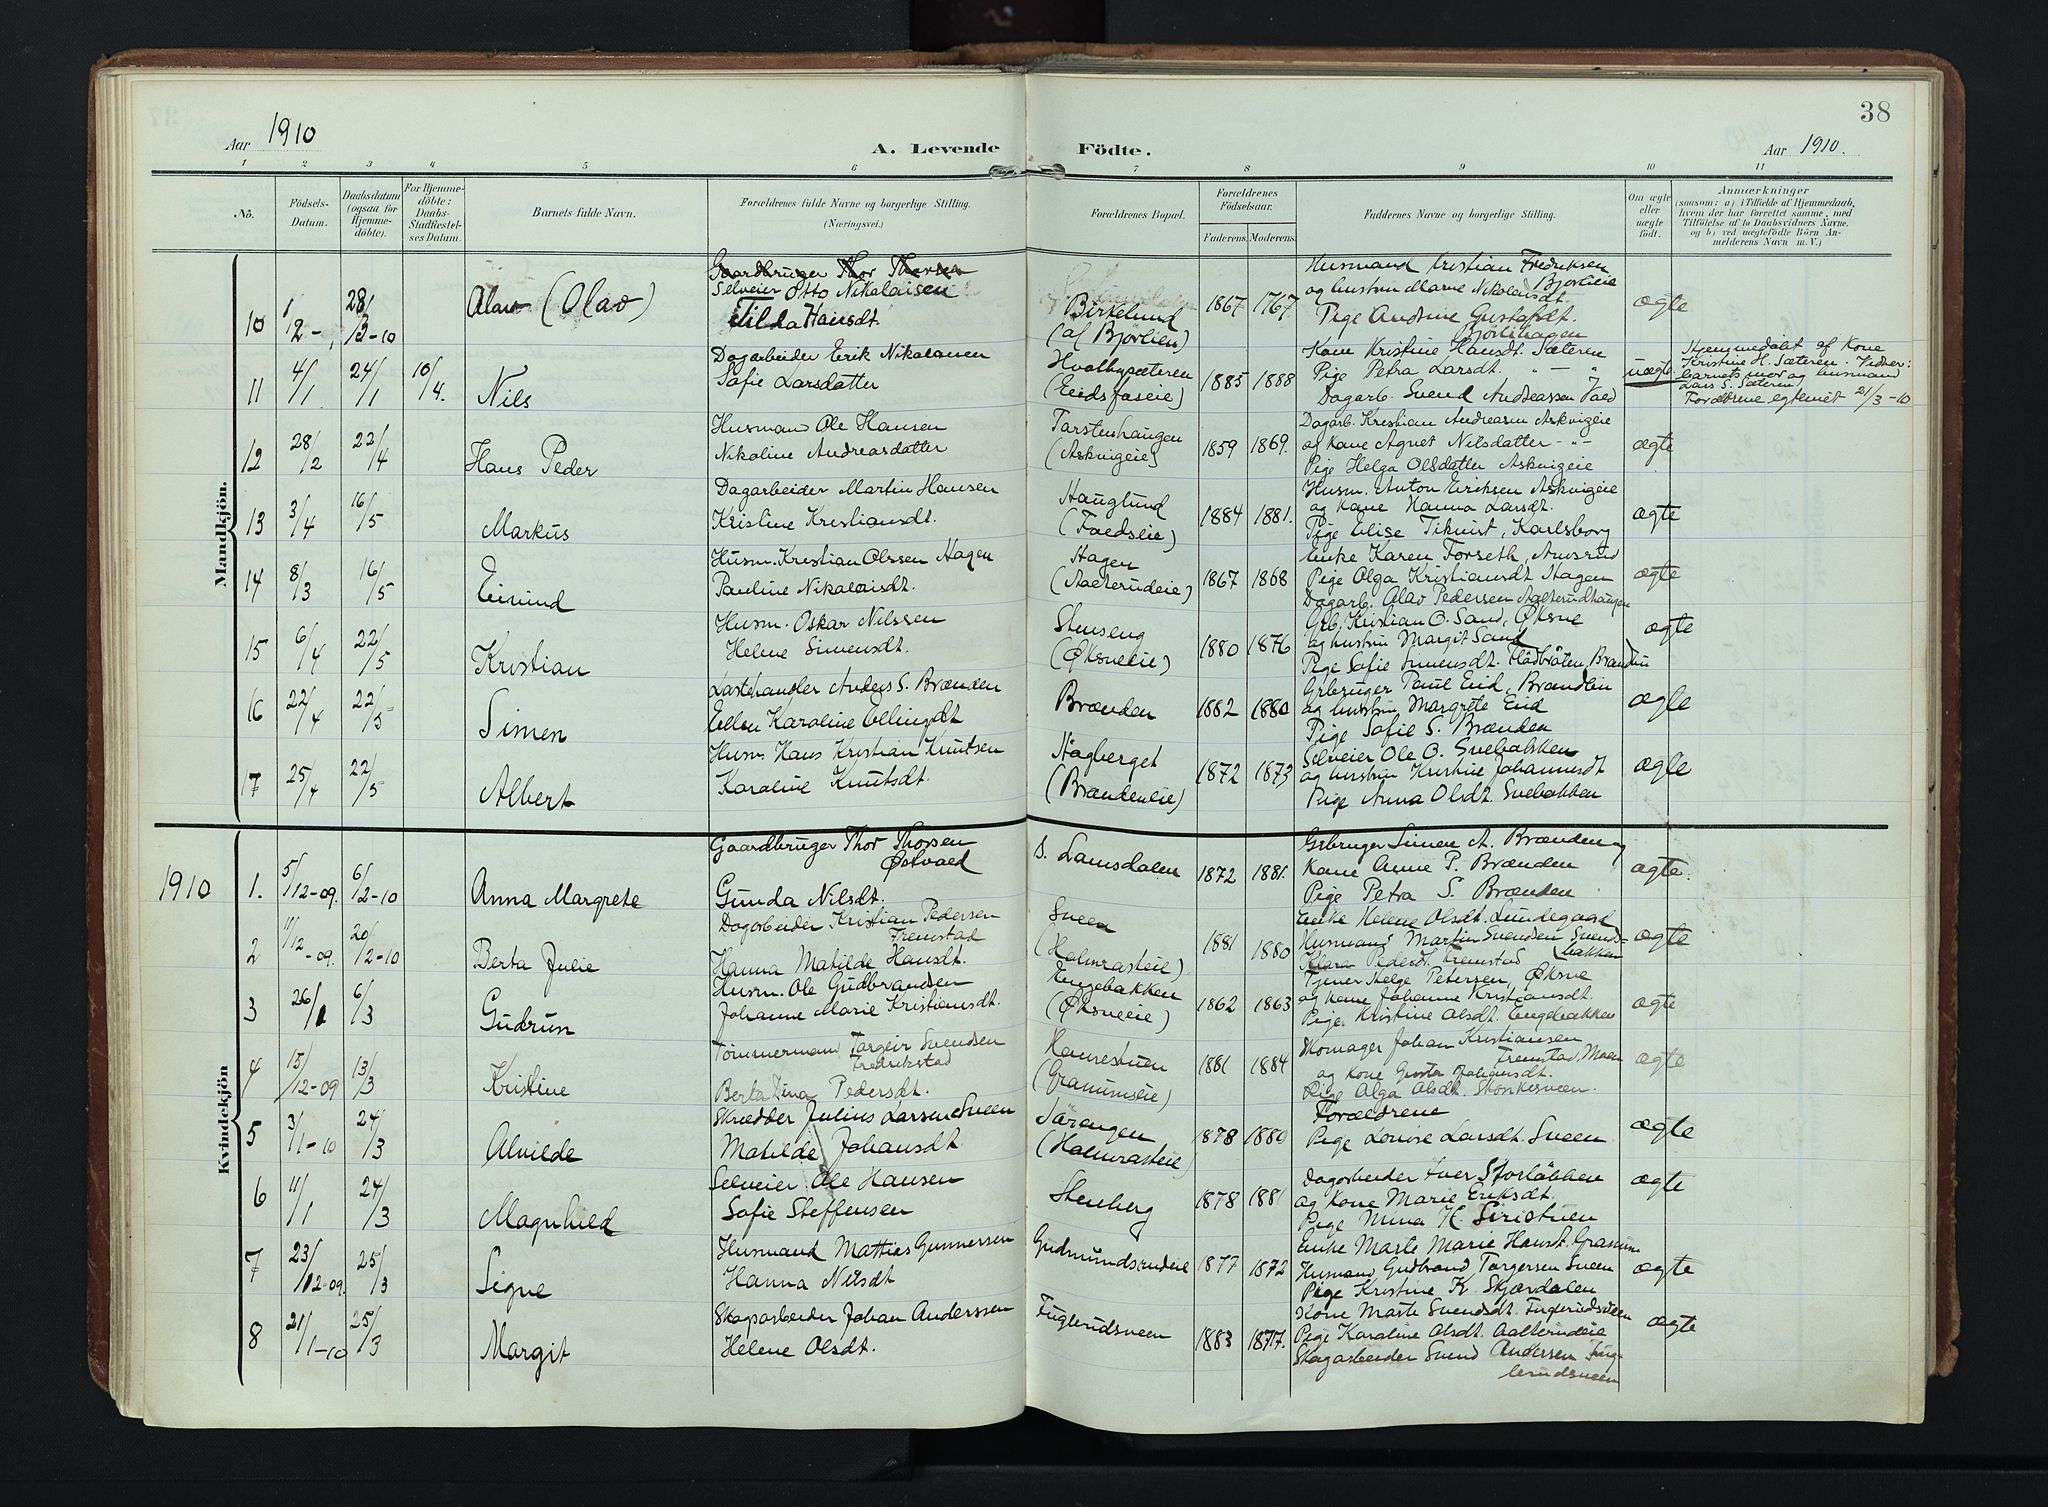 38
Aar 1910
A. Levende Födte.
Aar 1910.
1 2 3 4 5 6 7 8 9 10 11
No.
Födsels-Datum.
Daabsdatum (ogsaa for Hjemmedöbte).
For Hjemmedöbte: Daabs-Stadfæstelses Datum.
Barnets fulde Navn.
Forældrenes fulde Navne og borgerlige Stilling. (Næringsvei.)
Forældrenes Bopæl.
Forældrenes Födselsaar.
Faderens. Moderens.
Faddernes Navne og borgerlige Stilling.
Om ægte eller uægte födt.
Anmærkninger
(saasom: a) i Tilfælde af Hjemmedaab, hvem der har forrettet samme, med Tilföielse af to Daabsvidners Navne. og b) ved uægtefödte Börn Anmelderens Navn m. V.)
Mandkjön.
Gaardbruger Thor Thorsen
Husmand Kristian Fredriksen
10 28/3-10 Olav (Olav) Selveier Otto Nikolaisen Birkelund 1867 1767 og hustru Marie Nikolaisdt. Bjørlieie ægte
Tilda Hansdt. (af Bjørlien) Pige Andrine Gustafdt.
Bjørlihagen
Dagarbeider Erik Nikolaisen Kone Kristine Hansdt. Sæteren Hjemmedøbt af Kone
11 4/1 24/1 10/4. Nils Sofie Larsdatter Hvalbysæteren 1885 1888 Pige Petra Larsdt. " — " uægte Kristine H. Sæteren. Vidner:
(Eidsfoseie) Dagarb. Svend Andreassen Foed barnets mor og husmand
Lars S. Sæteren.
Forældrene egteviet 21/3-10
Husman Ole Hansen Torstenhaugen Dagarb. Kristian Andreasen Askvigeie
12 28/2 22/4 Hans Peder Nikoline Andreasdatter (Askvigeie) 1859 1869. og Kone Agnet Nilsdatter - " - ægte
Pige Helga Olsdatter Askvigeie
Dagarbeider Martin Hansen Hauglund Husm. Anton Eriksen Askvigeie
13 3/4 16/5 Markus Kristine Kristiansdt. (Foedseie) 1884 1881. og Kone Hanna Larsdt. ægte
Pige Elise Tikvist, Karlsborg
Husm. Kristian Olssen Hagen Hagen Enke Karen Forseth, Amsrud
14 8/3 16/5 Eivind Pauline Nikolaisdt. (Aaterudeie) 1867 1868 Pige Olga Kristiansdt Hagen ægte
Dagarb. Olav Pedersen Aaterudhaugen
Husm. Oskar Nilssen Stenseng Grb. Kristian O. Sand, Øksne
15 6/4 22/5 Kristian Helene Simensdt. (Øksneeie) 1880 1876 og hustru Margit Sand ægte
Pige Sofie Simensdt. Flådbråten, Brændin
Lasthandler Anders S. Brænden Grbruger Paul Eid, Brændlin
16 22/4 22/5 Simen Ellen Karoline Ellingsdt Brænden 1882 1880 og hustru Margrete Eid ægte
Pige Sofie S. Brænden
Husm. Hans Kristian Knutsen Hagberget Selveier Ole O. Svebakken
17 25/4 22/5 Albert Karoline Knutsdt. (Brændeneie) 1872 1873 og hustru Kristine Johannesdt ægte
Pige Anna Olsdt. Svebakken
Kvindekjön
1910
Gaardbruger Thor Thorsen Østvold S. Lamsdalen Grbruger Simen A. Brænden og
1. 5/12-09. 6/2-10 Anna Margrete Gunda Nilsdt. 1872 1881. Kone Anne P. Brænden ægte.
Pige Petra S. Brænden
Dagarbeider Kristian Pedersen Fremstad Sveen Enke Helene Olsdt. Lundegaard
2 11/12-09. 20/2-10 Berta Julie Hanna Matilde Hansdt. (Holmraseie) 1881 1880 Husmand Martin Svendsen Svendsbakken ægte
Klara Pedersdt. Fremstad
Husm. Ole Gudbrandsen Engebakken Tjener Helge Petersen, Øksne
3 26/1 6/3 Gudrun Johanne Marie Kristiansdt. (Øksneeie) 1862 1863 og Kone Johanne Kristiansdt. ægte
Pige. Kristine Olsdt. Engebakken
Tømmermand Torgeir Svendsen Fredrikstad Skomager Johan Kristiansen Fremstad, Moen
4 15/12-09 13/3 Kristine Berta Dina Pedersdt. (Granumseie) 1881 1884 og Kone Johansdt. ægte
Pige Olga Olsdt.
Skrædder Julius Larsen Sveen Tårengen Forældrene
5 3/1-10 24/3 Alvilde Matilde Johansdt. (Holmraseie) 1878 1880 Pige Lovise Larsdt. Sveen ægte
Selveier Ole Hansen Dagarbeider Iver Storløkken
6 11/1 24/3 Magnhild Sofie Steffensen Stenberg 1878 1881 og Kone Marie Eriksdt. ægte
Pige Mina H. Siristuen
Husmand Mattias Gunnersen Gudmundsrudeie Enke Marte Marie Hansdt. Granum
7 23/12-09. 25/3 Signe Hanna Nilsdt 1877 1872 Husmand Gudbrand Torgersen Sveen ægte
Pige Kristine K. Skjærdalen
Skogsarbeider Johan Anderssen Fuglerudsveen Kone Marte Svendsdt. Fuglerudsveen
8 21/1-10 25/3 Margit Helene Olsdt. 1883 1877. Pige Karoline Olsdt. Aaterudeie ægte
Skogarbeider Svend Andersen Fuglerudsveen